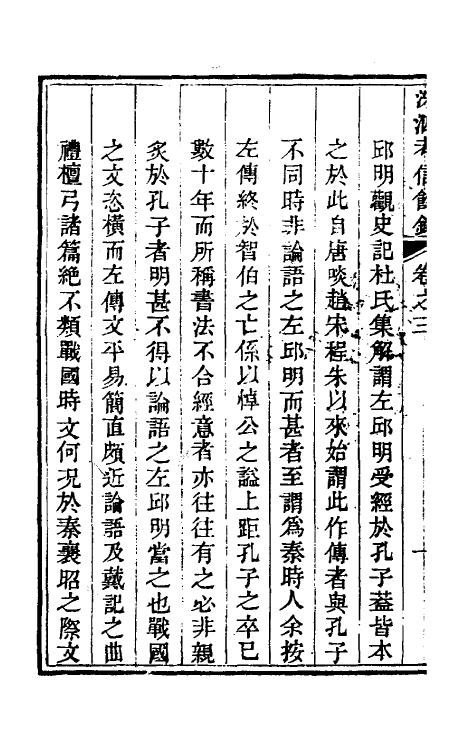 洙泗考信餘錄　卷之三
邱明觀史記杜氏集解謂左邱明受經於孔子葢皆本
之於此自唐啖趙宋程朱以來始謂此作傳者與孔子
不同時非論語之左邱明而甚者至謂爲秦時人余按
左傳終於智伯之亡係以悼公之謚上距孔子之卒已
數十年而所稱書法不合經意者亦往往有之必非親
炙於孔子者明甚不得以論語之左邱明當之也戰國
之文恣橫而左傳文平易簡直頗近論語及戴記之曲
禮檀弓諸篇絶不類戰國時文何况於秦襄昭之際文